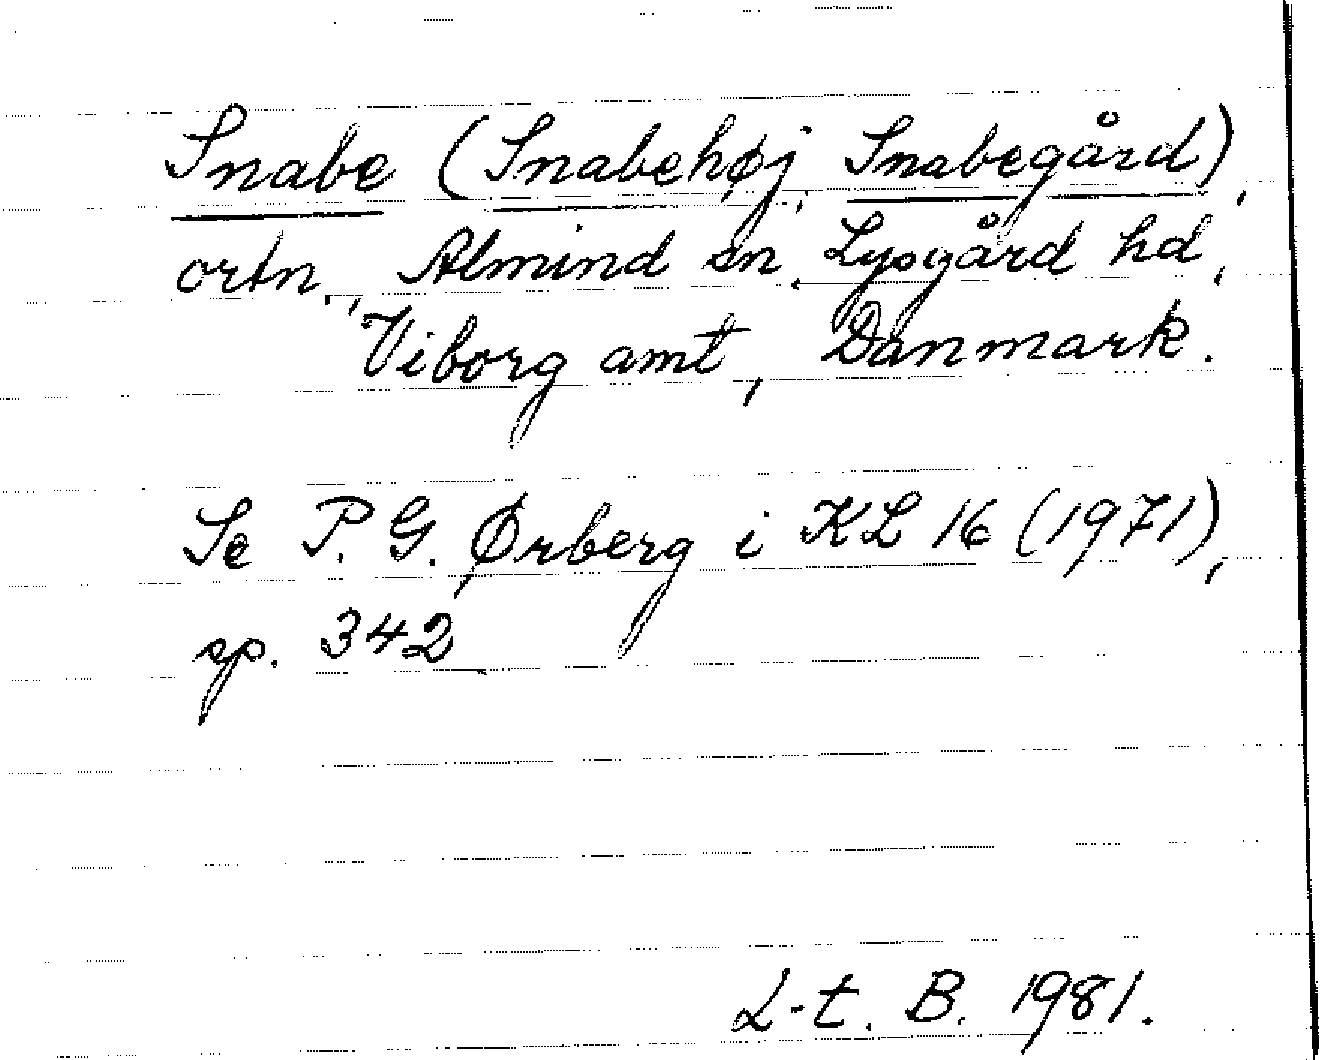 Snabe (Snabehøj, Snabegård),
ortn., Almind sn, Lysgård hd,
Viborg amt, Danmark.
Se P. G. Ørberg i KL 16 (1971),
sp. 342
L-t. B. 1981.